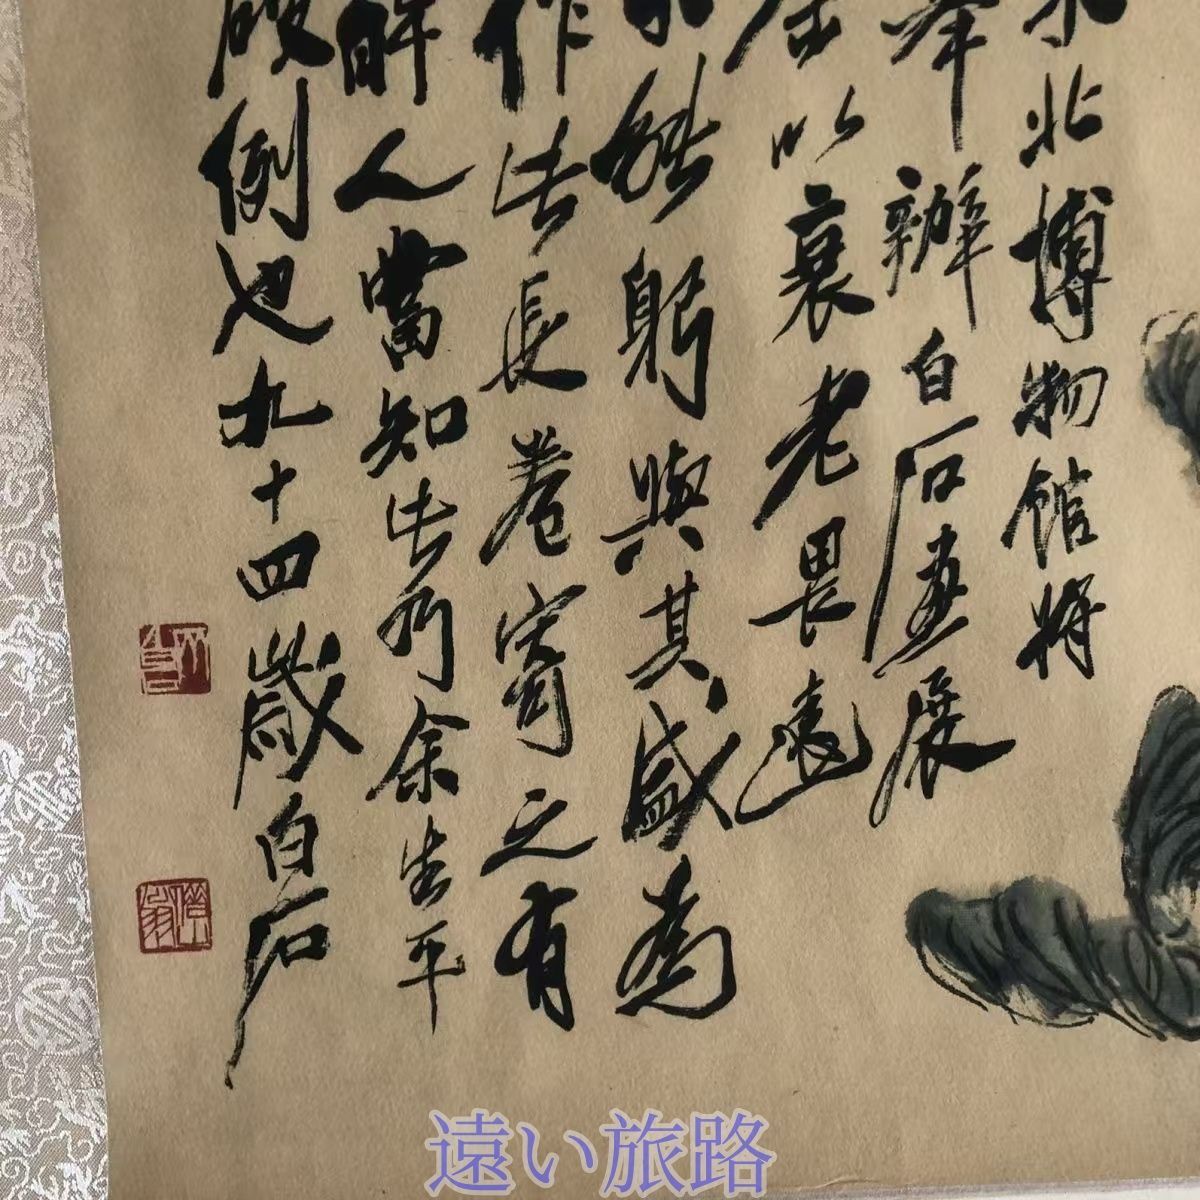 北博物館将
举辦白石畫展
以衰老畏遠
能躬與其盛為
作此長卷寄之有
解人當知此乃余生平
破例也九十四歲白石
遠い旅路